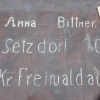 Anna Bittner.
Setzdorf
Kr. Freiwaldau